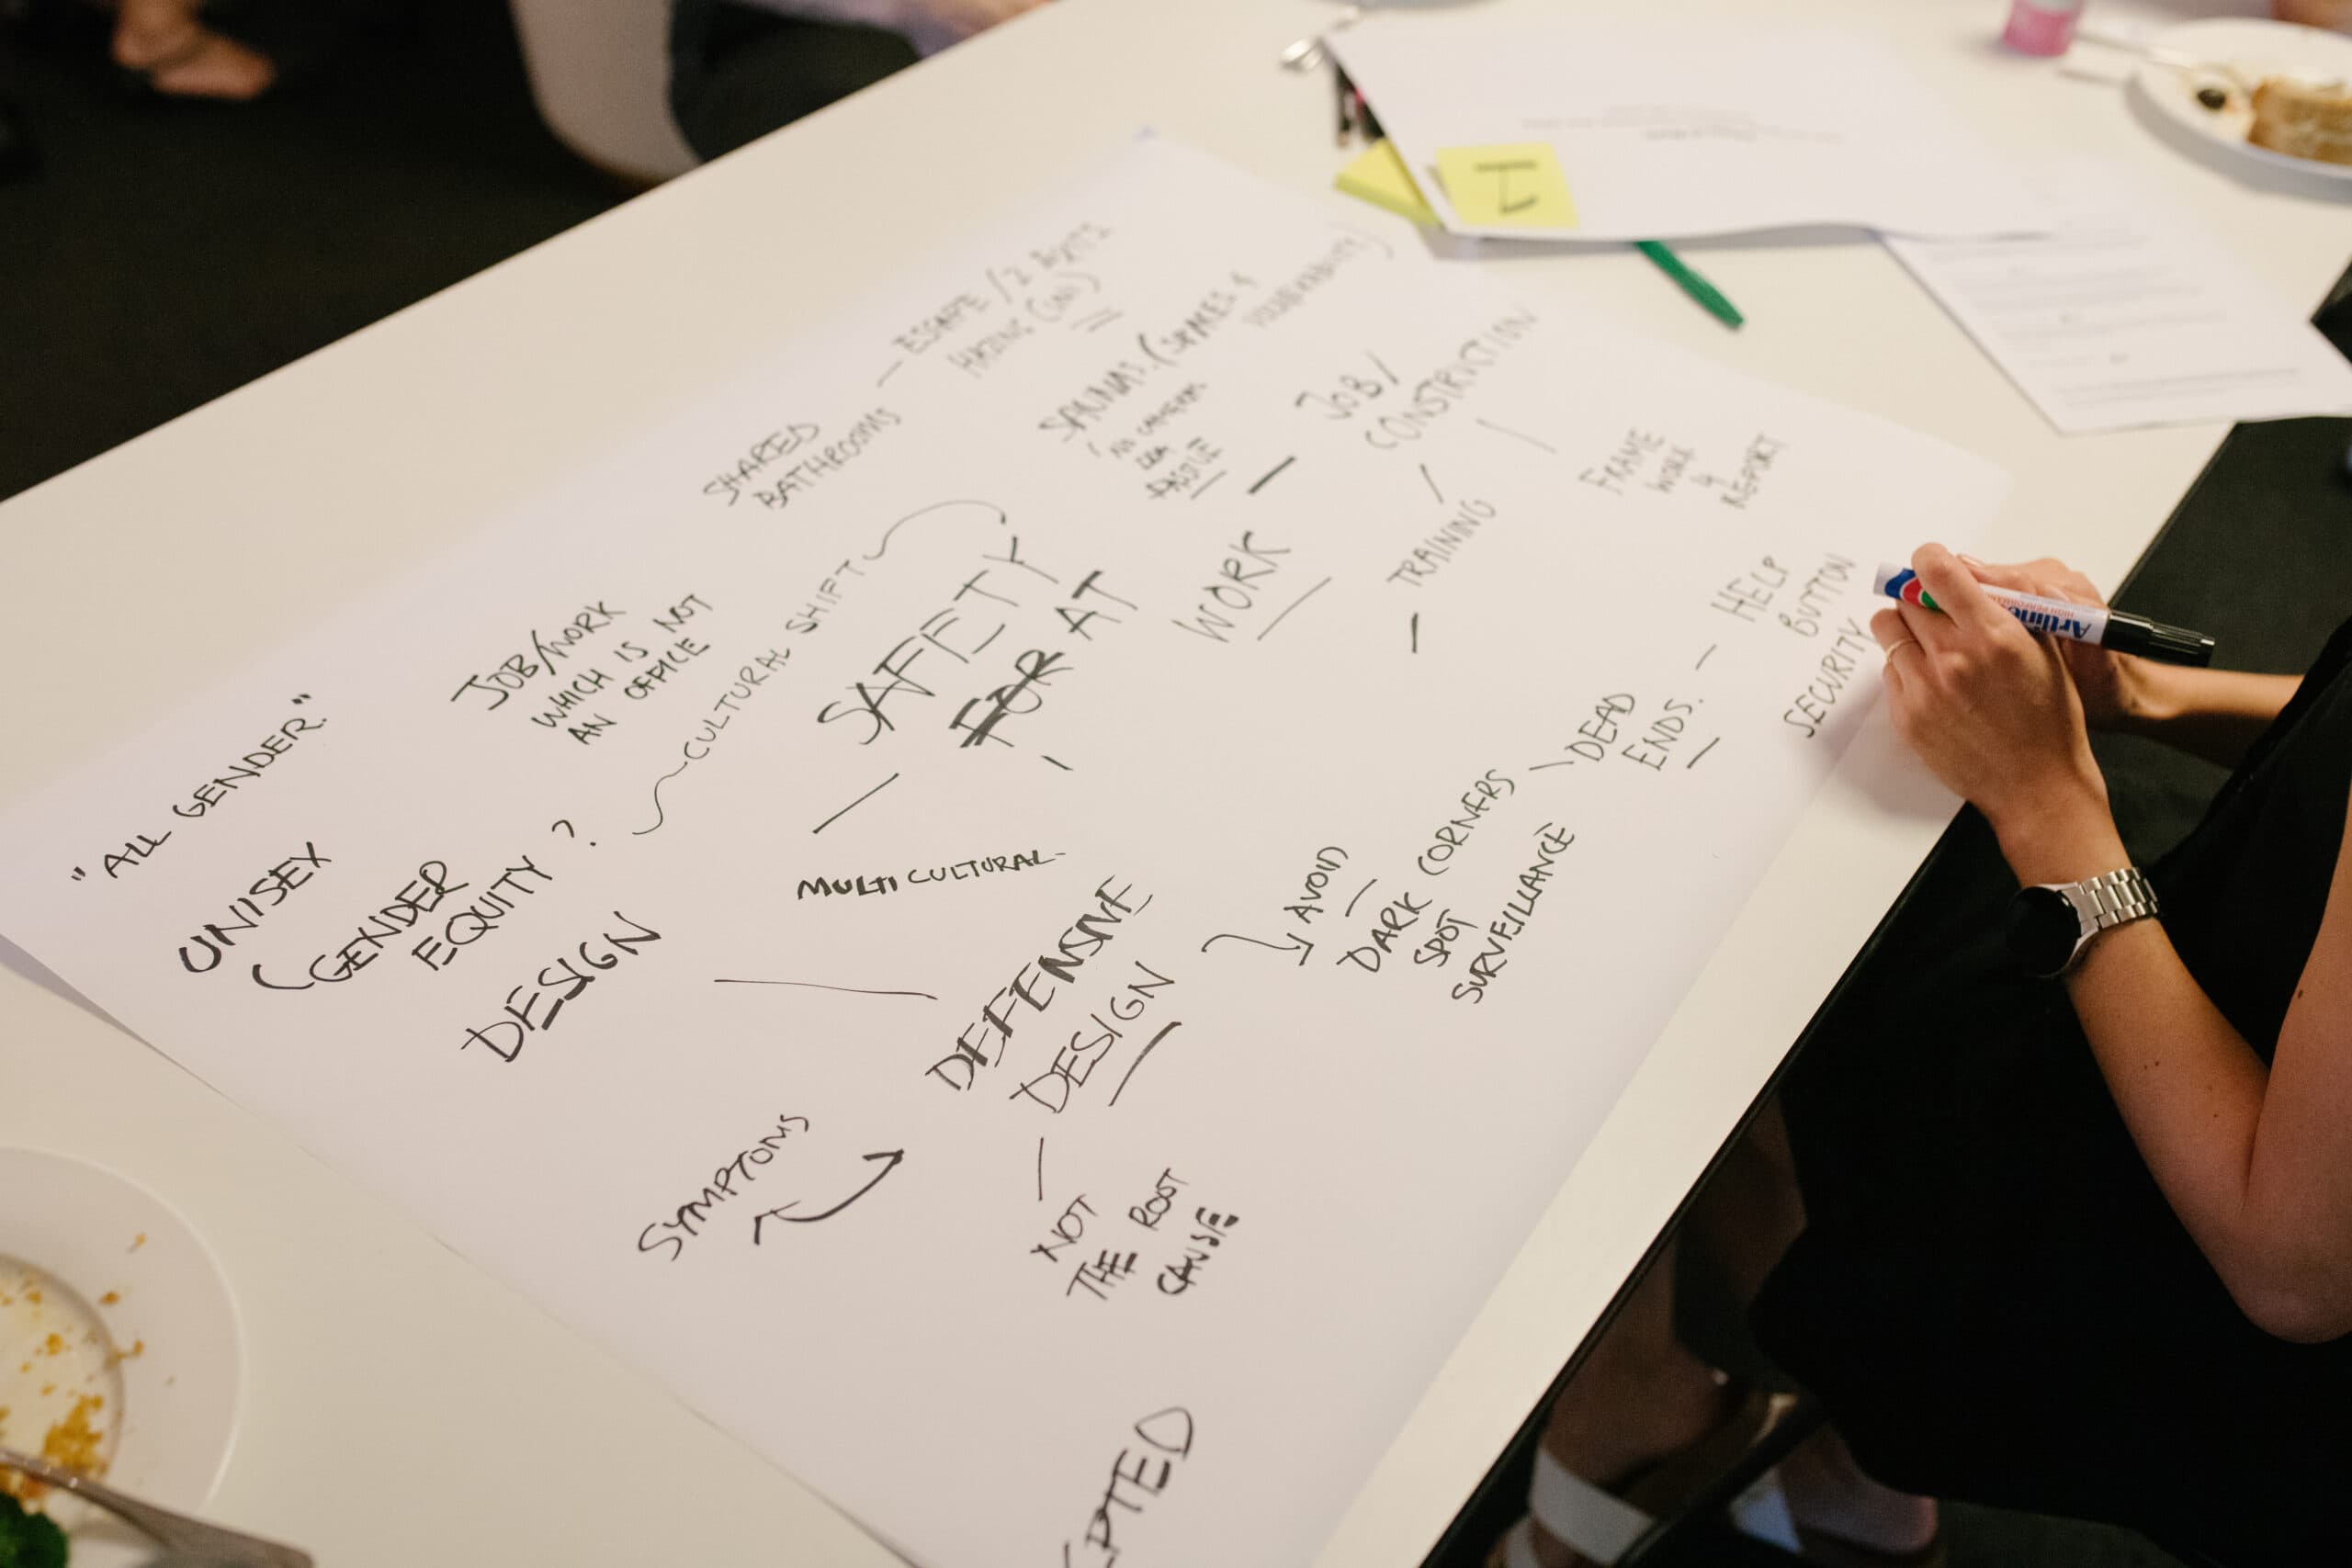 — ESCAPE / 2 EXITS
SHARED
BATHROOMS
JOB /
CONSTRUCTION
FRAME
WORK
&
REPORT
TRAINING
WORK
SAFETY
FOR AT
CULTURAL SHIFT
JOB/WORK
WHICH IS NOT
AN OFFICE
"ALL GENDER."
UNISEX
(GENDER
EQUITY ?
DESIGN
MULTI CULTURAL
DEFENSIVE
DESIGN
AVOID
DARK CORNERS
SPOT
SURVEILLANCE
DEAD
ENDS.
HELP
BUTTON
SECURITY
SYMPTOMS
NOT
THE ROOT
CAUSE
CPTED
Artline